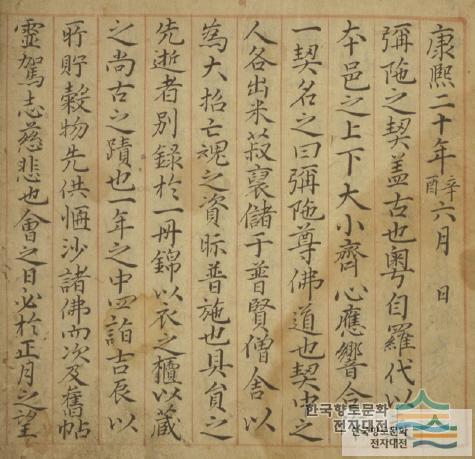 康熙二十年辛酉六月 日
彌陁之契盖古也粤自羅代以
夲邑之上下大小齊心應響合
一契名之曰彌陁尊佛道也契中之
人各出米菽裏儲于普賢僧舍以
為大招亡魂之資眎普施也具貟之
先逝者别錄於一冊錦以衣之櫃以藏
之尚古之蹟也一年之中四詣吉辰以
所貯糓物先供恆沙諸佛而次及舊帖
靈駕志慈悲也會之日必於正月之望
한국향토문화
전자대전
한국향토문화
전자대전